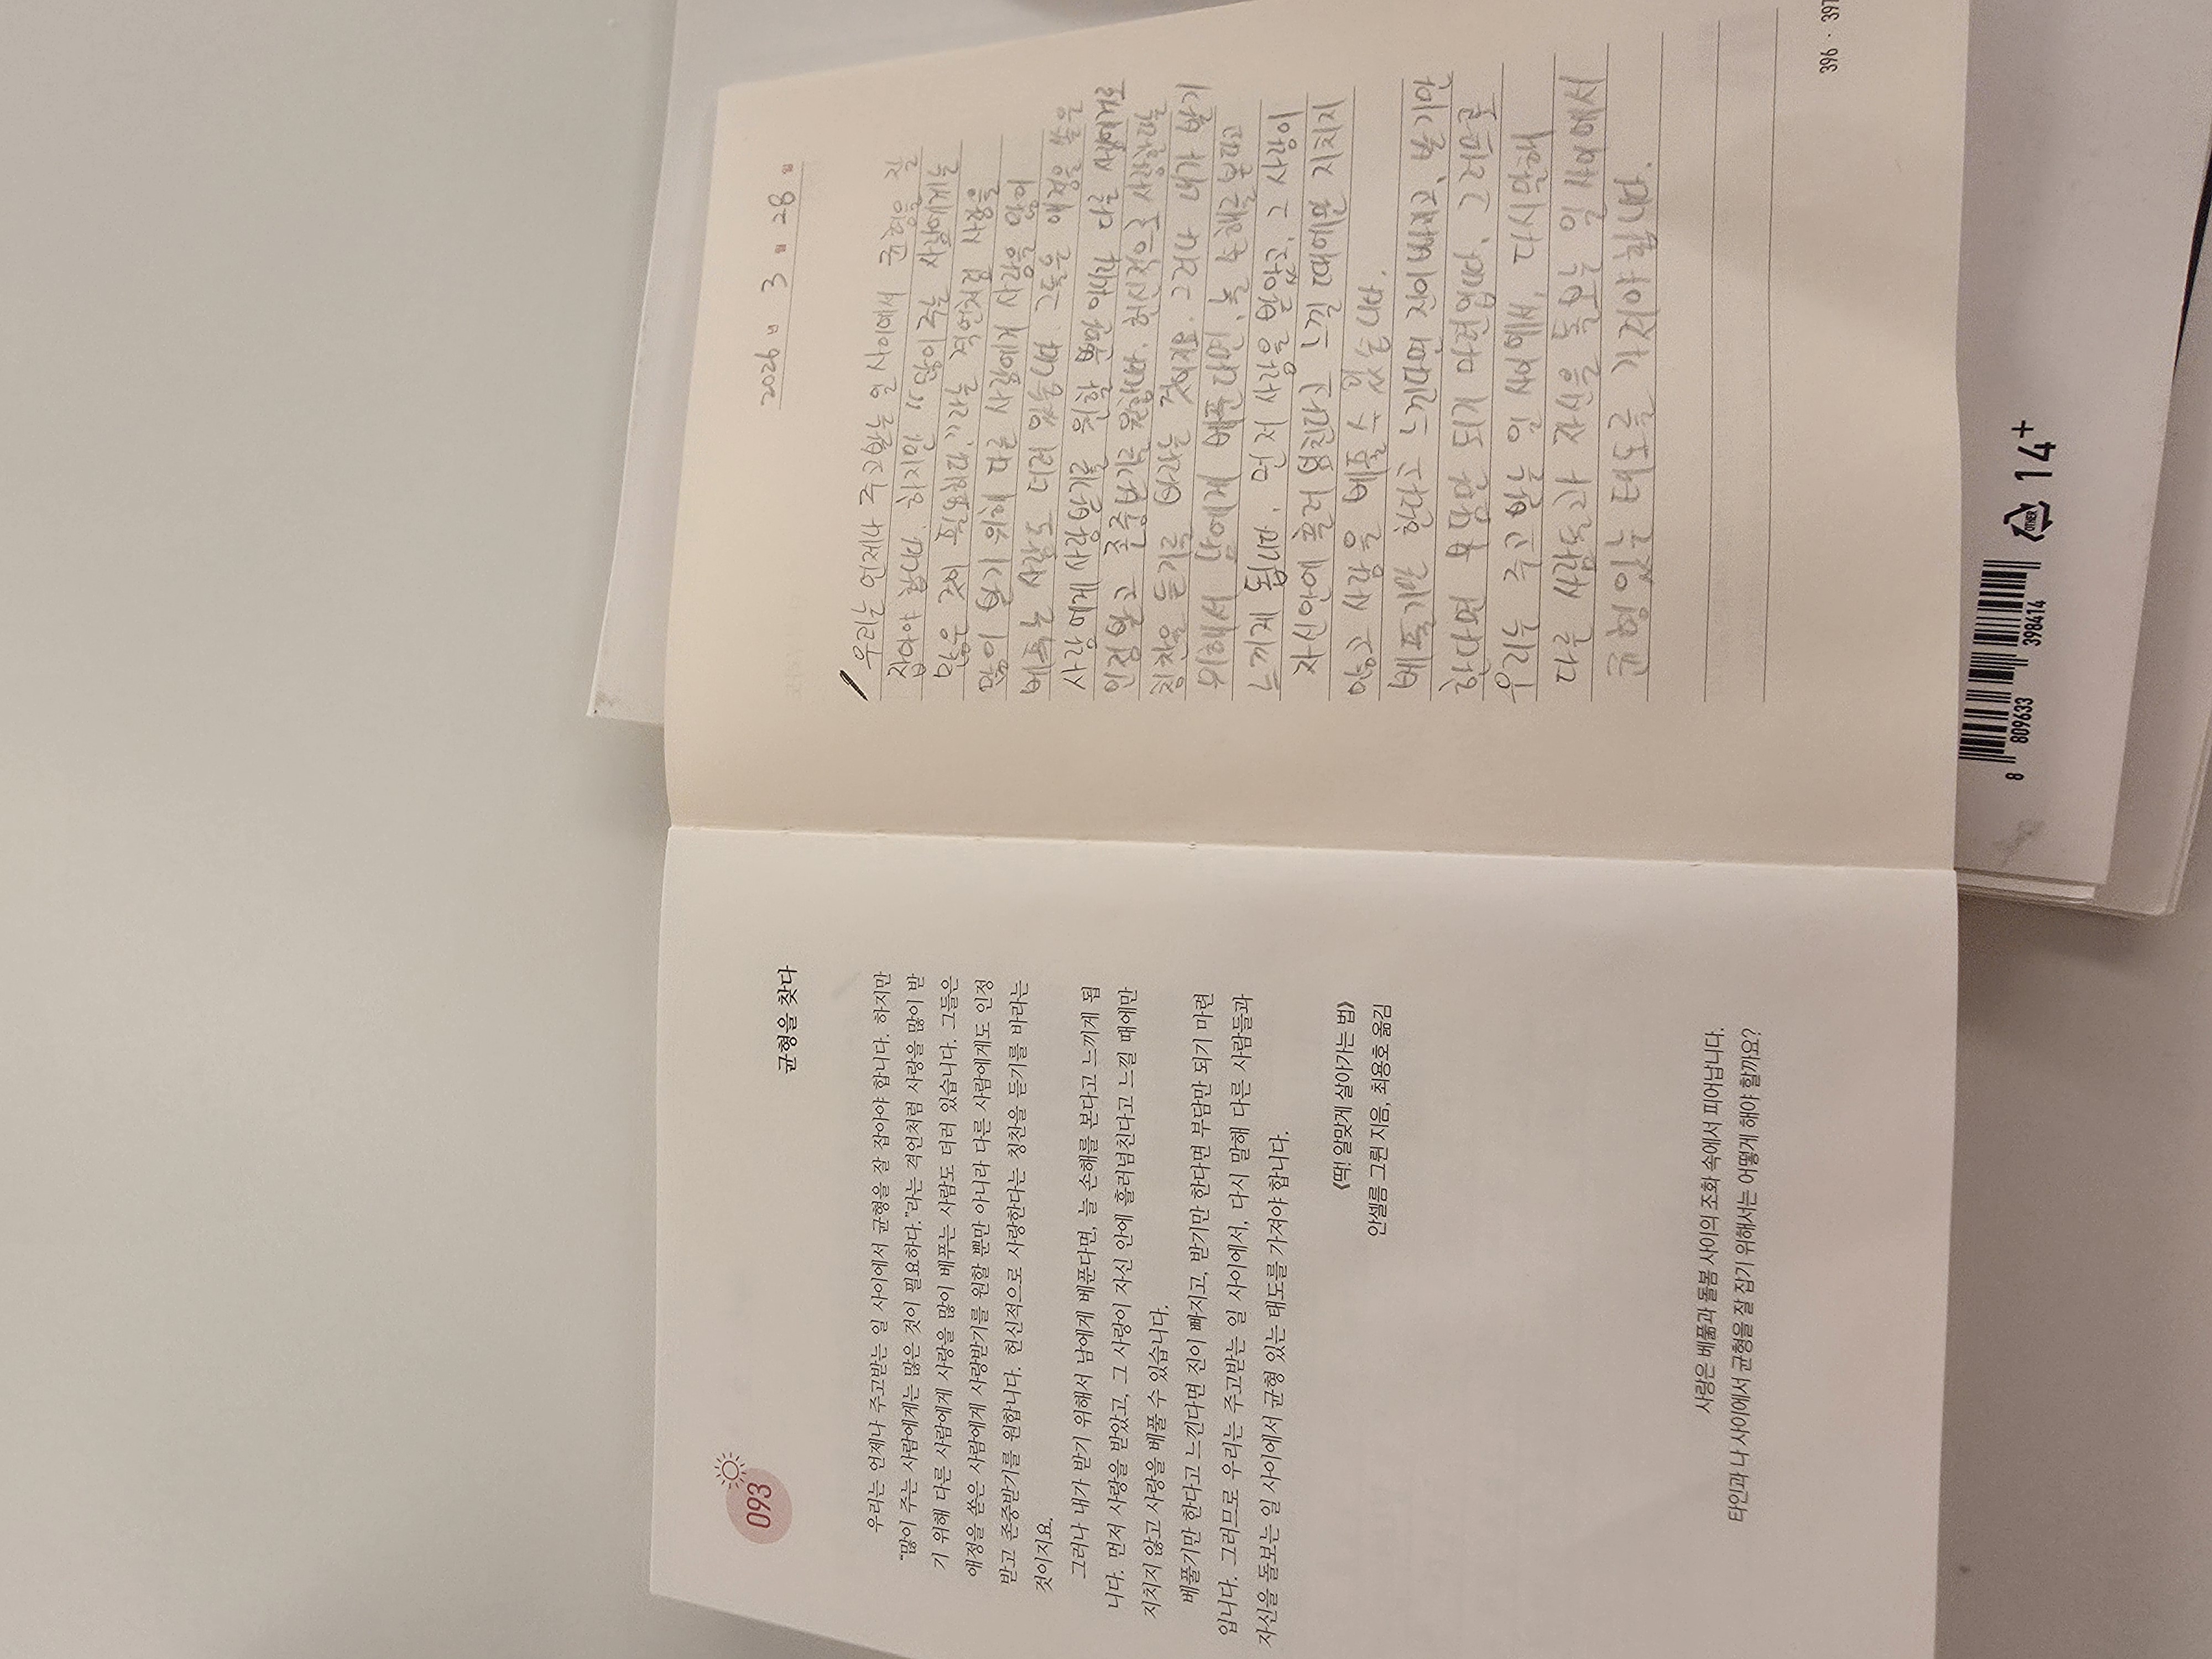 093
균형을 찾다
우리는 언제나 주고받는 일 사이에서 균형을 잘 잡아야 합니다. 하지만
"많이 주는 사람에게는 많은 것이 필요하다."라는 격언처럼 사랑을 많이 받
기 위해 다른 사람에게 사랑을 많이 베푸는 사람도 더러 있습니다. 그들은
애정을 쏟은 사람에게 사랑받기를 원할 뿐만 아니라 다른 사람에게도 인정
받고 존중받기를 원합니다. 헌신적으로 사랑한다는 칭찬을 듣기를 바라는
것이지요.
그러나 내가 받기 위해서 남에게 베푼다면, 늘 손해를 본다고 느끼게 됩
니다. 먼저 사랑을 받았고, 그 사랑이 자신 안에 흘러넘친다고 느낄 때에만
지치지 않고 사랑을 베풀 수 있습니다.
베풀기만 한다고 느낀다면 진이 빠지고, 받기만 한다면 부담만 되기 마련
입니다. 그러므로 우리는 주고받는 일 사이에서, 다시 말해 다른 사람들과
자신을 돌보는 일 사이에서 균형 있는 태도를 가져야 합니다.
《딱! 알맞게 살아가는 법》
안셀름 그륀 지음, 최용호 옮김
사랑은 베풂과 돌봄 사이의 조화 속에서 피어납니다.
타인과 나 사이에서 균형을 잘 잡기 위해서는 어떻게 해야 할까요?
2026 년 3 월 28 일
우리는 언제나 주고받는 일 사이에서 균형을 잘
잡아야 합니다. 하지만 "많이 주는 사람에게는
많은 것이 필요하다."라는 격언처럼 사랑을
많이 받기 위해 다른 사람에게 사랑을 많이
베푸는 사람도 더러 있습니다. 그들은 애정을 쏟은
사람에게 사랑받기를 원할 뿐만 아니라 다른
인정받고 존중받기를 원합니다. 헌신적으로 사랑한다는
칭찬을 듣기를 바라는 것이지요. 그러나 내가 받기
위해서 남에게 베푼다면, 늘 손해를 본다고
느끼게 됩니다. 먼저 사랑을 받았고, 그 사랑이
자신안에 흘러넘친다고 느낄 때에만 지치지
않고 사랑을 베풀 수 있습니다.
베풀기만 한다고 느낀다면 진이 빠지고, 받기만
한다면 부담만 되기 마련입니다. 그러므로
우리는 주고받는 일 사이에서, 다시말해
다른 사람들과 자신을 돌보는 일 사이에서
균형있는 태도를 가져야 합니다.
396 · 397
8 809633 398414
OTHER
14+